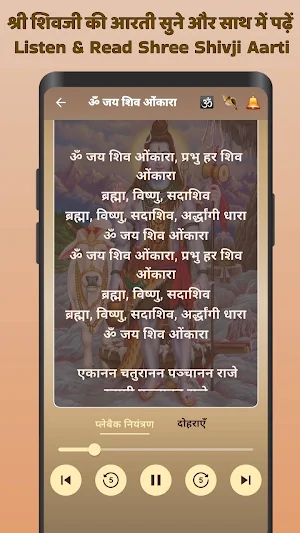 श्री शिवजी की आरती सुने और साथ में पढ़ें
Listen & Read Shree Shivji Aarti
ॐ जय शिव ओंकारा
ॐ
ॐ जय शिव ओंकारा, प्रभु हर शिव
ओंकारा
ब्रह्मा, विष्णु, सदाशिव
ब्रह्मा, विष्णु, सदाशिव, अर्द्धांगी धारा
ॐ जय शिव ओंकारा
ॐ जय शिव ओंकारा, प्रभु हर शिव
ओंकारा
ब्रह्मा, विष्णु, सदाशिव
ब्रह्मा, विष्णु, सदाशिव, अर्द्धांगी धारा
ॐ जय शिव ओंकारा
एकानन चतुरानन पञ्चानन राजे
प्लेबैक नियंत्रण दोहराएँ
5 5